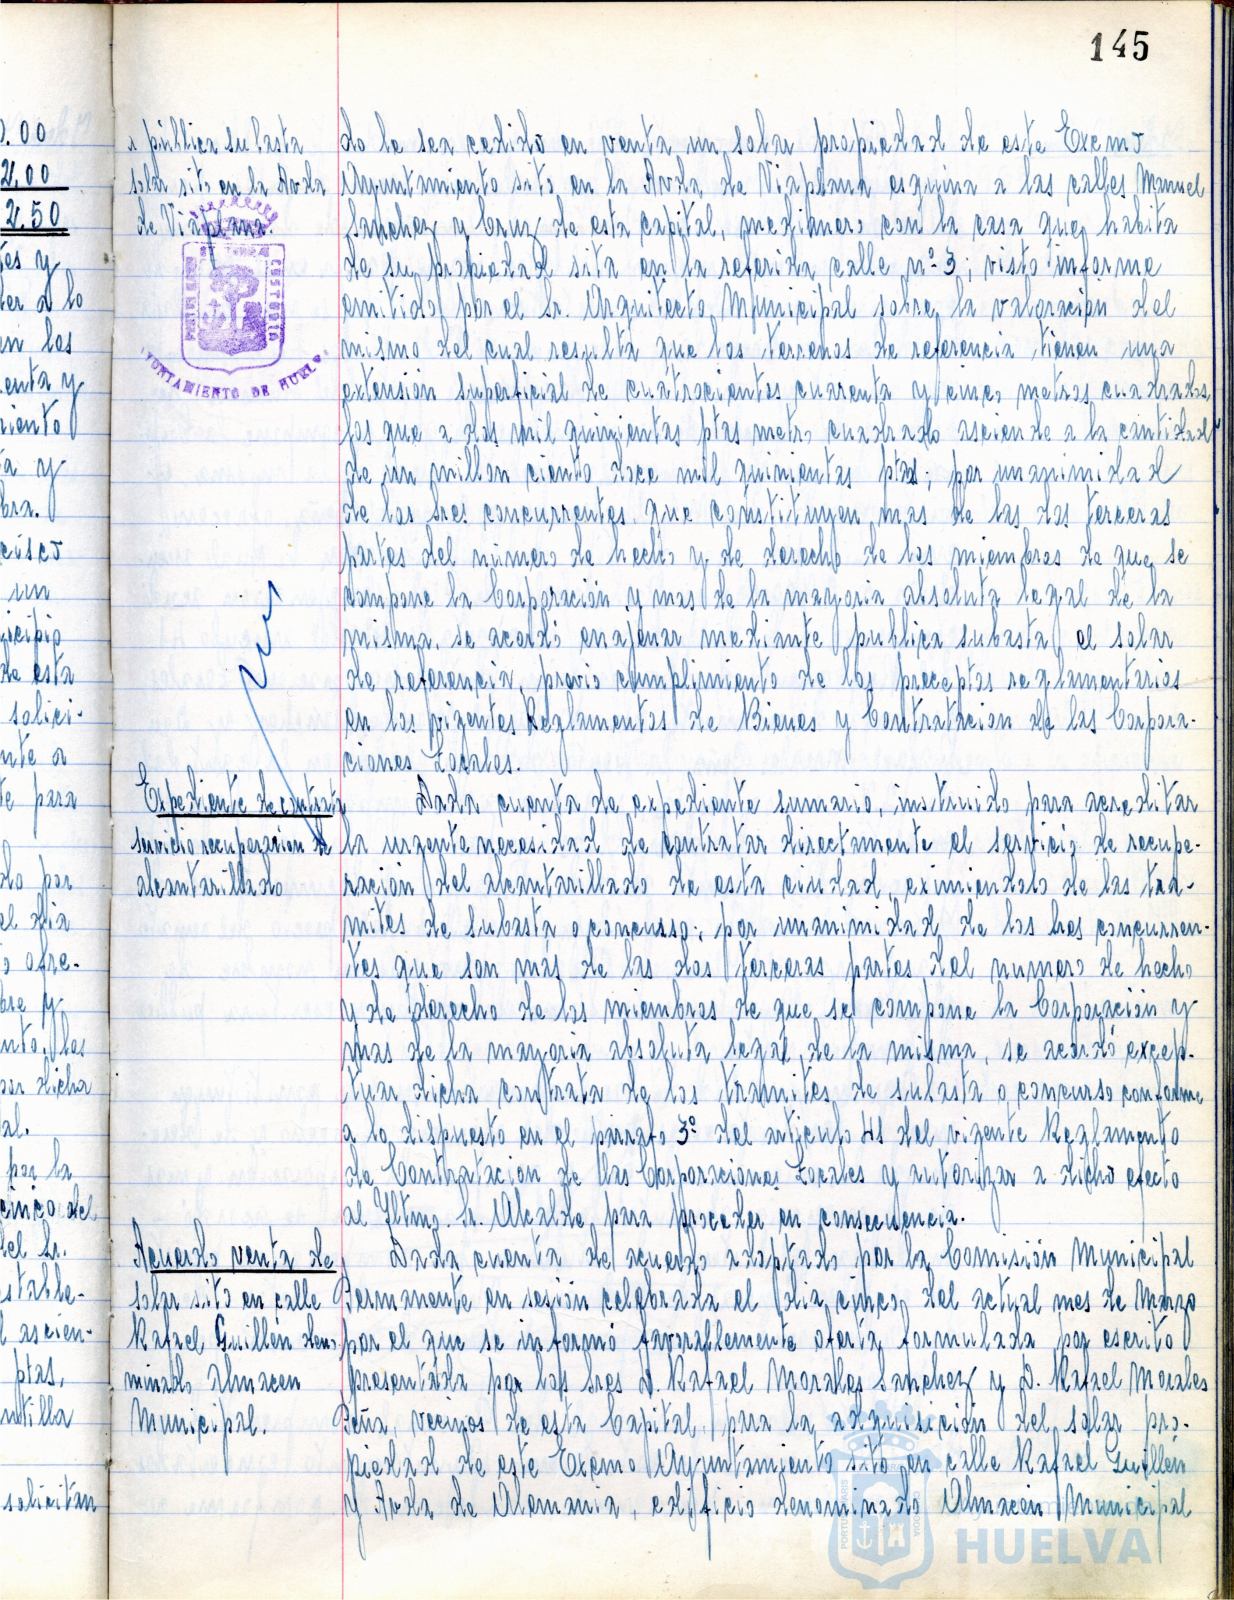 145
a pública subasta
solar sito en la Avda
de Viaplana.
do le sea cedido en venta un solar propiedad de este Excmo
Ayuntamiento sito en la Avda de Viaplana esquina a las calles Manuel
Sanchez y Cruz de esta capital, medianero con la casa que habita
de su propiedad sita en la referida calle nº 3; visto informe
emitido por el Sr. Arquitecto Municipal sobre la valoración del
mismo del cual resulta que los terrenos de referencia tienen una
extensión superficial de cuatrocientos cuarenta y cinco metros cuadrados,
los que a dos mil quinientas ptas metro cuadrado asciende a la cantidad
de un millon ciento doce mil quinientas ptas; por unanimidad
de los Sres concurrentes, que constituyen mas de las dos terceras
partes del número de hecho y de derecho de los miembros de que se
compone la Corporación y mas de la mayoria absoluta legal de la
misma, se acordó enajenar mediante publica subasta el solar
de referencia, previo cumplimiento de los preceptos reglamentarios
en los vigentes Reglamentos de Bienes y Contratación de las Corpora-
ciones Locales.
Expediente de contrata
servicio recuperacion de
alcantarillado
Dada cuenta de expediente sumario, instruido para acreditar
la urgente necesidad de contratar directamente el servicio de recupe-
ración del alcantarillado de esta ciudad eximiendolo de las tra-
mites de subasta o concusso; por unanimidad de los Sres concurren-
tes que son más de las dos terceras partes del numero de hecho
y de derecho de los miembros de que se compone la Corporación y
mas de la mayoria absoluta legal de la misma, se acordó excep-
tuar dicha contrata de los tramites de subasta o concurso conforme
a lo dispuesto en el parrafo 3º del articulo 41 del vigente Reglamento
de Contratacion de las Corporaciones Locales y autorizar a dicho efecto
al Iltmo. Sr. Alcalde para proceder en consecuencia.
Acuerdo venta de
solar sito en calle
Rafael Guillén deno-
minado Almacen
Municipal.
Dada cuenta de acuerdo adoptado por la Comisión Municipal
Permanente en sesión celebrada el dia cinco del actual mes de Marzo
por el que se informó favorablemente oferta formulada por escrito
presentada por los Sres D. Rafael Morales Sanchez y D. Rafael Morales
Peña, vecinos de esta Capital, para la adquisición del solar pro-
piedad de este Excmo Ayuntamiento sito en calle Rafael Guillén
y Avda de Alemania, edificio denominado Almacén Municipal
AYUNTAMIENTO DE HUELVA
HUELVA